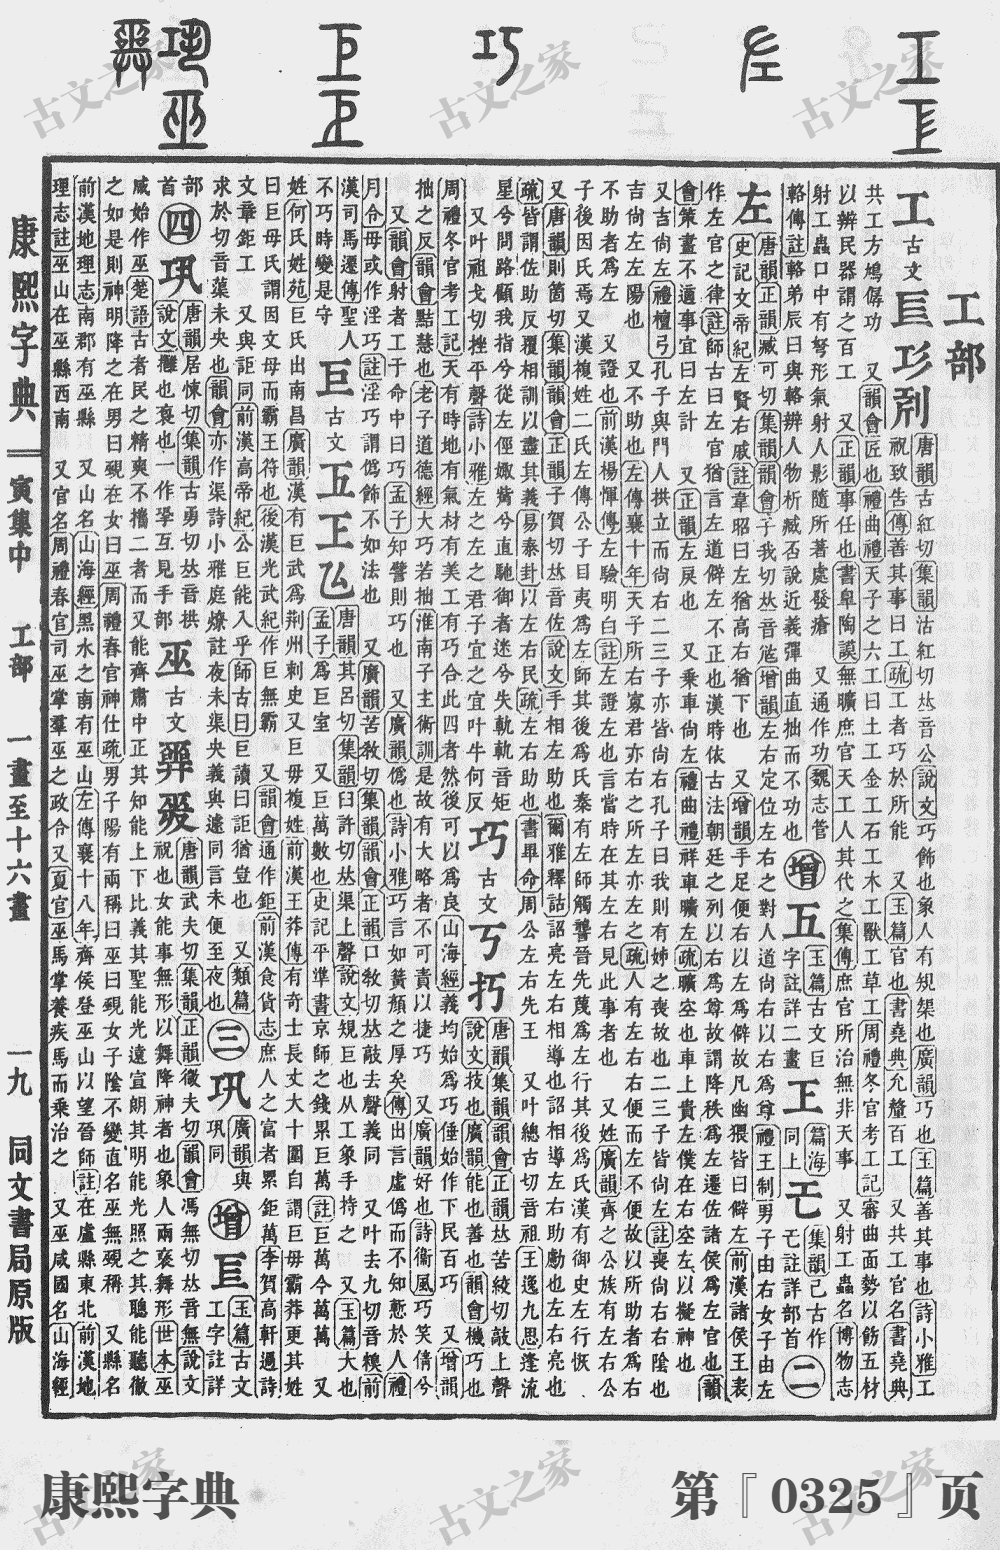 工部
工 古文 𢒄 𢀚 𠛐 唐韻古紅切集韻沽紅切𠀤音公說文巧飾也象人有規榘也廣韻巧也玉篇善其事也詩小雅工
祝致告傳善其事曰工疏工者巧於所能 又玉篇官也書堯典允釐百工 又共工官名書堯典
共工方鳩僝功 又韻會匠也禮曲禮天子之六工曰土工金工石工木工獸工草工周禮冬官考工記審曲面勢以飭五材
以辨民器謂之百工 又正韻事任也書臯陶謨無曠庶官天工人其代之集傳庶官所治無非天事 又射工蟲名博物志
射工蟲口中有弩形氣射人影隨所著處發瘡 又通作功魏志管
輅傳註輅弟辰曰與輅辨人物析臧否說近義彈曲直拙而不功也 增 玉篇古文巨字註詳二畫 篇海同上 集韻己古作㔾註詳部首 二
左 唐韻正韻臧可切集韻韻會子我切𠀤音𡯛增韻左右定位左右之對人道尚右以右爲尊禮王制男子由右女子由左
史記文帝紀左賢右戚註韋昭曰左猶高右猶下也 又增韻手足便右以左爲僻故凡幽猥皆曰僻左前漢諸侯王表
作左官之律註師古曰左官猶言左道僻左不正也漢時依古法朝廷之列以右爲尊故謂降秩爲左遷佐諸侯爲左官也韻
會策畫不適事宜曰左計 又正韻左戾也 又乘車尚左禮曲禮祥車曠左疏曠空也車上貴左僕在右空左以擬神也
又吉尚左禮檀弓孔子與門人拱立而尚右二三子亦皆尚右孔子曰我則有姊之喪故也二三子皆尚左註喪尚右右陰也
吉尚左左陽也 又不助也左傳襄十年天子所右寡君亦右之所左亦左之疏人有左右右便而左不便故以所助者爲右
不助者爲左 又證也前漢楊惲傳左驗明白註左證左也言當時在其左右見此事者也 又姓廣韻齊之公族有左右公
子後因氏焉又漢複姓二氏左傳公子目夷爲左師其後爲氏秦有左師觸讋晉先蔑爲左行其後爲氏漢有御史左行恢
又唐韻則箇切集韻韻會正韻子賀切𠀤音佐說文手相左助也爾雅釋詁詔亮左右相導也詔相導左右助勴也左右亮也
疏皆謂佐助反覆相訓以盡其義易泰卦以左右民疏左右助也書畢命周公左右先王 又叶總古切音祖王逸九思逢流
星兮問路顧我指兮從左俓娵觜兮直馳御者迷兮失軌軌音矩
又叶祖戈切挫平聲詩小雅左之左之君子宜之宜叶牛何反 巧 古文 丂 㧉 唐韻集韻韻會正韻𠀤苦絞切敲上聲
說文技也廣韻能也善也韻會機巧也
周禮冬官考工記天有時地有氣材有美工有巧合此四者然後可以爲良山海經義均始爲巧倕始作下民百巧 又增韻
拙之反韻會黠慧也老子道德經大巧若拙淮南子主術訓是故有大略者不可責以捷巧又廣韻好也詩衞風巧笑倩兮
又韻會射者工于命中曰巧孟子知譬則巧也 又廣韻僞也詩小雅巧言如簧顏之厚矣傳出言虛僞而不知慙於人禮
月令毋或作淫巧註淫巧謂僞飾不如法也 又廣韻苦敎切集韻韻會正韻口敎切𠀤敲去聲義同 又叶去九切音糗前
漢司馬遷傳聖人不巧時變是守 巨 古文 唐韻其呂切集韻臼許切𠀤渠上聲說文規巨也从工象手持之 又玉篇大也
孟子爲巨室 又巨萬數也史記平準書京師之錢累巨萬註巨萬今萬萬 又
姓何氏姓苑巨氏出南昌廣韻漢有巨武爲荆州刺史又巨毋複姓前漢王莽傳有奇士長丈大十圍自謂巨毋霸莽更其姓
曰巨毋氏謂因文母而霸王符也後漢光武紀作巨無霸 又韻會通作鉅前漢食貨志庶人之富者累鉅萬李賀高軒過詩
文章鉅工 又與詎同前漢高帝紀公巨能入乎師古曰巨讀曰詎猶豈也 又類篇
求於切音蕖未央也韻會亦作渠詩小雅庭燎註夜未渠央義與遽同言未便至夜也 三 巩 廣韻與巩同 增 玉篇古文工字註詳
部首 四 巩 唐韻居悚切集韻古勇切𠀤音拱說文𢹬也褱也一作㧬互見手部 巫 古文 唐韻武夫切集韻正韻微夫切韻會馮無切𠀤音無說文
祝也女能事無形以舞降神者也象人兩褎舞形世本巫
咸始作巫楚語古者民之精爽不攜二者而又能齊肅中正其知能上下比義其聖能光遠宣朗其明能光照之其聰能聽徹
之如是則神明降之在男曰覡在女曰巫周禮春官神仕疏男子陽有兩稱曰巫曰覡女子陰不變直名巫無覡稱 又縣名
前漢地理志南郡有巫縣 又山名山海經黑水之南有巫山左傳襄十八年齊侯登巫山以望晉師註在盧縣東北前漢地
理志註巫山在巫縣西南 又官名周禮春官司巫掌羣巫之政令又夏官巫馬掌養疾馬而乘治之 又巫咸國名山海經
康熙字典 寅集中 工部 一畫至十六畫 一九 同文書局原版
康熙字典
第『0325』页
古文之家
古文之家
古文之家
古文之家
古文之家
古文之家